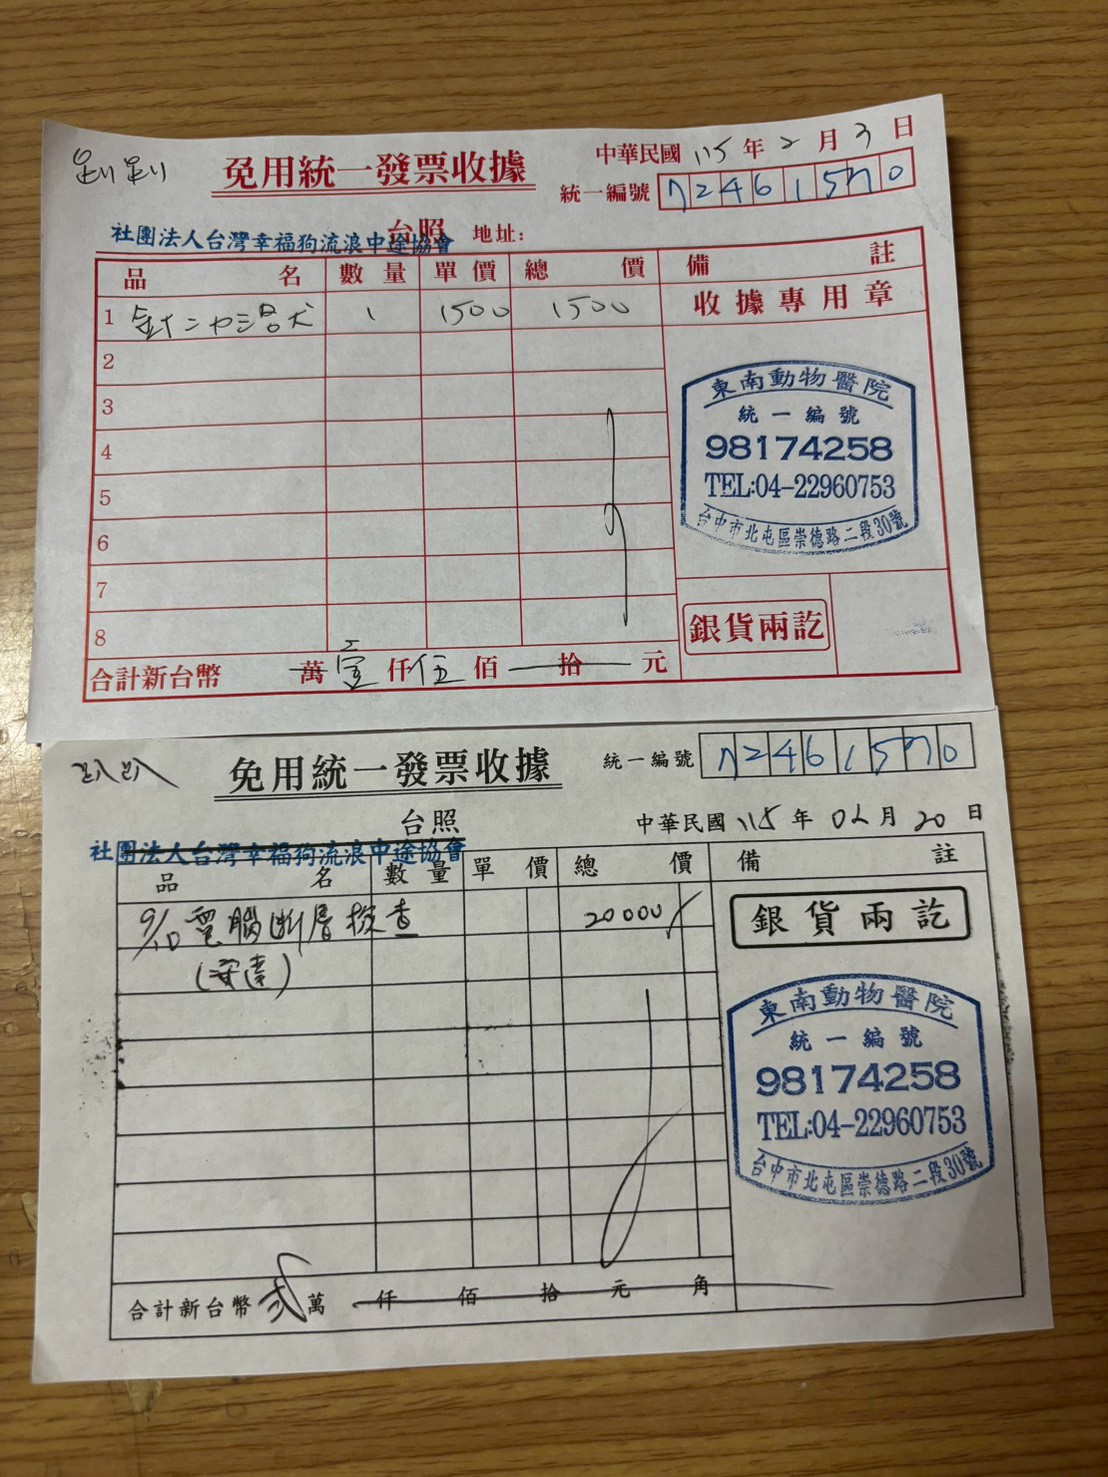 免用統一發票收據
中華民國 115 年 2 月 3 日
統一編號 72461570
社團法人台灣幸福狗流浪中途協會
台照 地址:
品名 數量 單價 總價 備註
1 1 1500 1500 收據專用章
2
3
4
5
6
7
8
東南動物醫院
統一編號
98174258
TEL:04-22960753
台中市北屯區崇德路二段30號
銀貨兩訖
合計新台幣 萬 壹 仟 伍 佰 拾 元
趴趴
免用統一發票收據
統一編號 72461570
台照
中華民國 115 年 02 月 20 日
社團法人台灣幸福狗流浪中途協會
品名 數量 單價 總價 備註
9/10 電腦斷層檢查 20000
銀貨兩訖
東南動物醫院
統一編號
98174258
TEL:04-22960753
台中市北屯區崇德路二段30號
合計新台幣 貳 萬 仟 佰 拾 元 角